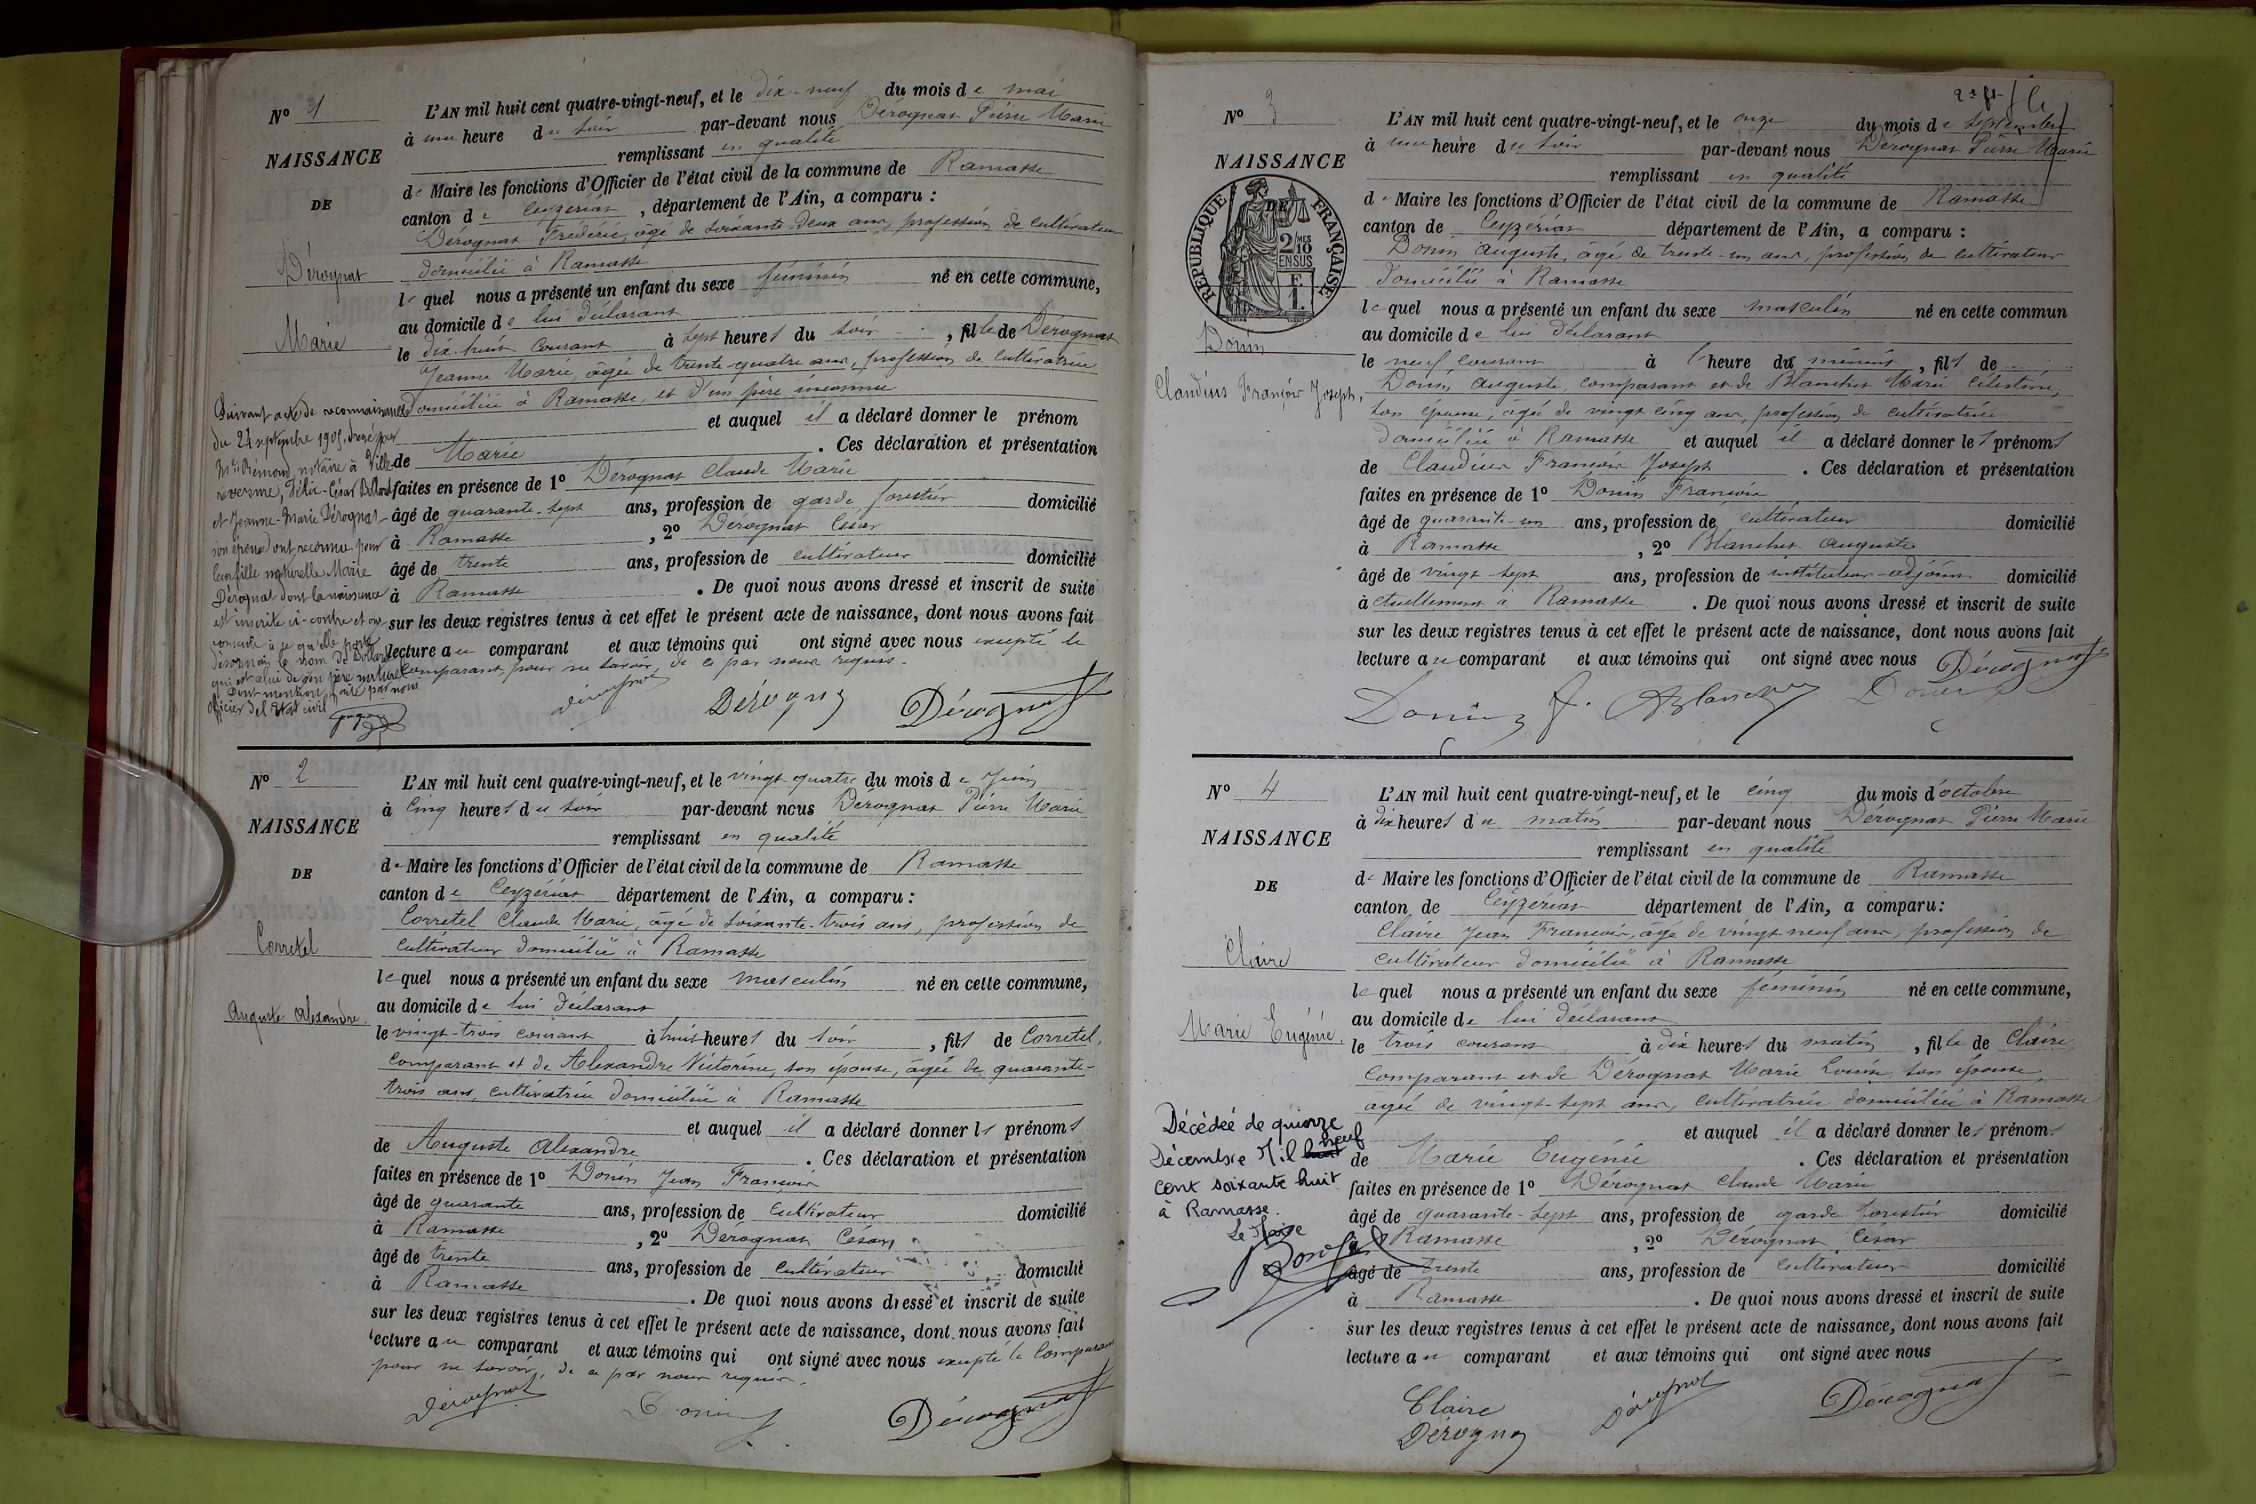 N° 1
NAISSANCE
DE
Dérognat
Marie
L'AN mil huit cent quatre-vingt-neuf, et le dix-neuf du mois de mai
à une heure du soir par-devant nous Dérognat Pierre Marie
remplissant en qualité
de Maire les fonctions d'Officier de l'état civil de la commune de Ramasse
canton de Ceyzériat, département de l'Ain, a comparu :
Dérognat Frédéric, âgé de soixante-deux ans, profession de cultivateur
domicilié à Ramasse
lequel nous a présenté un enfant du sexe féminin né en cette commune,
au domicile de lui déclarant
le dix-huit courant à sept heures du soir, fille de Dérognat
Jeanne Marie, âgée de trente-quatre ans, profession de cultivatrice
domiciliée à Ramasse, et d'un père inconnu
et auquel il a déclaré donner le prénom
de Marie. Ces déclaration et présentation
faites en présence de 1° Dérognat Claude Marie
âgé de quarante-sept ans, profession de garde forestier domicilié
à Ramasse, 2° Dérognat César
âgé de trente ans, profession de cultivateur domicilié
à Ramasse. De quoi nous avons dressé et inscrit de suite
sur les deux registres tenus à cet effet le présent acte de naissance, dont nous avons fait
lecture au comparant et aux témoins qui ont signé avec nous excepté le
comparant pour ne savoir, de ce par nous requis.
Suivant acte de reconnaissance
du 24 septembre 1905, dressé par
Me Rémond, notaire à Ville-
reversure, Félix-César
et Jeanne-Marie Dérognat
son épouse ont reconnu pour
leur fille naturelle Marie
Dérognat dont la naissance
est inscrite ci-contre et ont
consenti à ce qu'elle porte
désormais le nom de
qui est celui de son père naturel
Dont mention faite par nous
Officier de l'Etat civil
Dérognat Dérognat Dérognat
N° 2
NAISSANCE
DE
Corretel
Auguste Alexandre
L'AN mil huit cent quatre-vingt-neuf, et le vingt-quatre du mois de Juin
à cinq heures du soir par-devant nous Dérognat Pierre Marie
remplissant en qualité
de Maire les fonctions d'Officier de l'état civil de la commune de Ramasse
canton de Ceyzériat département de l'Ain, a comparu :
Corretel Claude Marie, âgé de soixante-trois ans, profession de
cultivateur domicilié à Ramasse
lequel nous a présenté un enfant du sexe masculin né en cette commune,
au domicile de lui déclarant
le vingt-trois courant à huit heures du soir, fils de Corretel,
comparant et de Alexandre Victorine, son épouse, âgée de quarante-
trois ans, cultivatrice domiciliée à Ramasse
et auquel il a déclaré donner les prénoms
de Auguste Alexandre. Ces déclaration et présentation
faites en présence de 1° Donin Jean François
âgé de quarante ans, profession de cultivateur domicilié
à Ramasse, 2° Dérognat César
âgé de trente ans, profession de cultivateur domicilié
à Ramasse. De quoi nous avons dressé et inscrit de suite
sur les deux registres tenus à cet effet le présent acte de naissance, dont nous avons fait
lecture au comparant et aux témoins qui ont signé avec nous excepté le comparant
pour ne savoir, de ce par nous requis.
Dérognat Donin Dérognat
N° 3
NAISSANCE
DE
RÉPUBLIQUE FRANÇAISE
2/10MES
EN SUS
Donin
Claudius François Joseph,
L'AN mil huit cent quatre-vingt-neuf, et le onze du mois de septembre
à une heure du soir par-devant nous Dérognat Pierre Marie
remplissant en qualité
de Maire les fonctions d'Officier de l'état civil de la commune de Ramasse
canton de Ceyzériat département de l'Ain, a comparu :
Donin Auguste, âgé de trente-un ans, profession de cultivateur
domicilié à Ramasse
lequel nous a présenté un enfant du sexe masculin né en cette commun
au domicile de lui déclarant
le neuf courant à l'heure du minuit, fils de
Donin Auguste, comparant et de Blanchet Marie Célestine,
son épouse, âgée de vingt cinq ans, profession de cultivatrice
domiciliée à Ramasse et auquel il a déclaré donner les prénoms
de Claudius François Joseph. Ces déclaration et présentation
faites en présence de 1° Donin François
âgé de quarante-un ans, profession de cultivateur domicilié
à Ramasse, 2° Blanchet Auguste
âgé de vingt-sept ans, profession de instituteur-adjoint domicilié
actuellement à Ramasse. De quoi nous avons dressé et inscrit de suite
sur les deux registres tenus à cet effet le présent acte de naissance, dont nous avons fait
lecture au comparant et aux témoins qui ont signé avec nous Dérognat
Donin f. ABlanchet Donin
N° 4
NAISSANCE
DE
Claire
Marie Eugénie.
L'AN mil huit cent quatre-vingt-neuf, et le cinq du mois d'octobre
à dix heures du matin par-devant nous Dérognat Pierre Marie
remplissant en qualité
de Maire les fonctions d'Officier de l'état civil de la commune de Ramasse
canton de Ceyzériat département de l'Ain, a comparu :
Claire Jean François, âgé de vingt-neuf ans, profession de
cultivateur domicilié à Ramasse
lequel nous a présenté un enfant du sexe féminin né en cette commune,
au domicile de lui déclarant
le trois courant à dix heures du matin, fille de Claire,
comparant et de Dérognat Marie Louise, son épouse,
agée de vingt-sept ans, cultivatrice domiciliée à Ramasse
et auquel il a déclaré donner les prénoms
de Marie Eugénie. Ces déclaration et présentation
faites en présence de 1° Dérognat Claude Marie
âgé de quarante-sept ans, profession de garde forestier domicilié
à Ramasse, 2° Dérognat César
âgé de trente ans, profession de cultivateur domicilié
à Ramasse. De quoi nous avons dressé et inscrit de suite
sur les deux registres tenus à cet effet le présent acte de naissance, dont nous avons fait
lecture au comparant et aux témoins qui ont signé avec nous
Décédée de quinze
Décembre Mil huit neuf
cent soixante huit
à Ramasse.
Le Maire
Claire Dérognat Dérognat
Dérognat